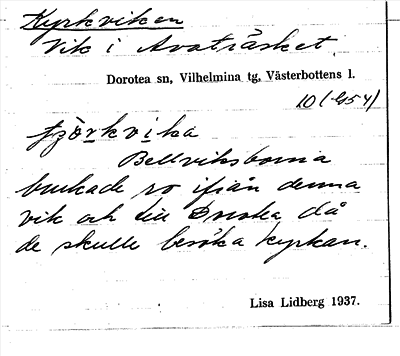 Kyrkviken
Vik i Avaträsket
Dorotea sn, Vilhelmina tg, Västerbottens l.
10 (454)
Bellviksborna
brukade ro ifrån denna
vik och till Dorotea då
de skulle besöka kyrkan.
Lisa Lidberg 1937.